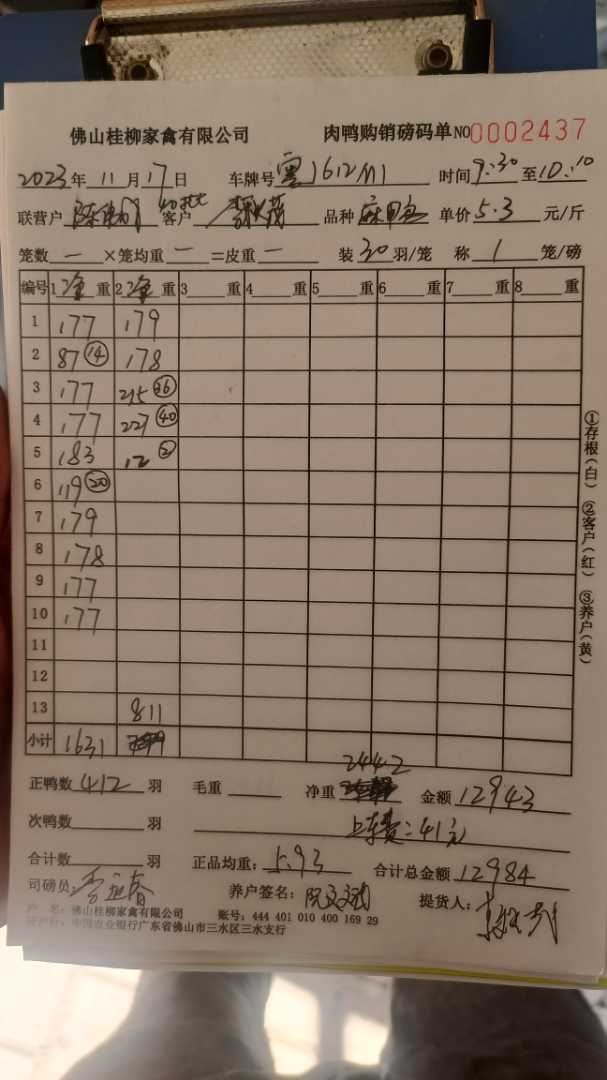 佛山桂柳家禽有限公司 肉鸭购销磅码单 NO0002437
2023年11月17日 车牌号 粤J612M1 时间9:30至10:10
联营户 客户 品种 单价5.3元/斤
笼数 一 ×笼均重 一 =皮重 一 装30羽/笼 称1笼/磅
编号 1净重 2净重 3 重 4 重 5 重 6 重 7 重 8 重
1 177 179
2 87 (14) 178
3 177 215 (36)
4 177 227 (40)
5 183 12 (2)
6 119 (20)
7 179
8 178
9 177
10 177
11
12
13 811
小计 1631
2442
正鸭数 412 羽 毛重 净重 金额 12943
次鸭数 羽 上车费:41元
合计数 羽 正品均重: 5.93 合计总金额 12984
司磅员: 养户签名: 提货人:
户 名: 佛山桂柳家禽有限公司 账号: 444 401 010 400 169 29
开户行: 中国农业银行广东省佛山市三水区三水支行
①存根(白) ②客户(红) ③养户(黄)